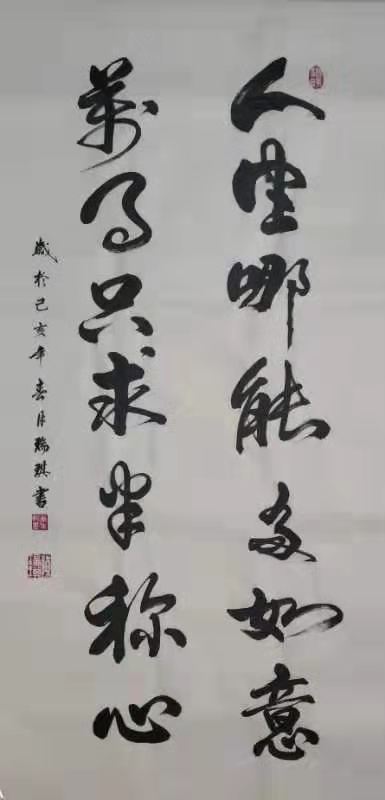 人生哪能多如意
萬事只求半称心
歲於己亥年春月瑞琪書